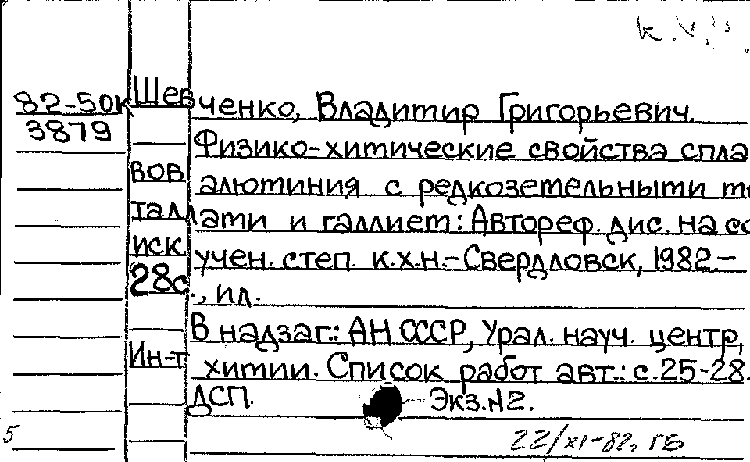 К.У.
82-50к Шевченко, Владимир Григорьевич.
3879
Физико-химические свойства спла
вов алюминия с редкоземельными ме
таллами и галлием: Автореф. дис. на со
иск. учен. степ. к.х.н.-Свердловск, 1982.-
28с., ил.
В надзаг.: АН СССР, Урал. науч. центр,
Ин-т химии. Список работ авт.: с.25-28.
ДСП. Экз.№2.
5
22/XI-82. ГБ